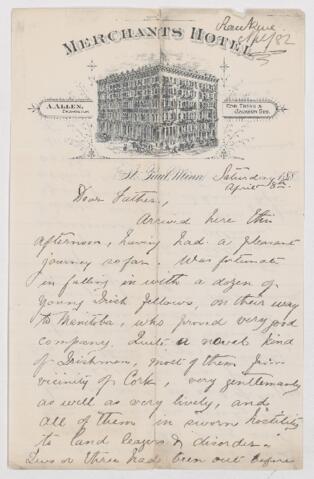 Rankine
April/82
MERCHANTS HOTEL
A. ALLEN,
COR. THIRD &
JACKSON STS.
St. Paul, Minn. Saturday 188
April 8th
Dear Father,
Arrived here this
afternoon, having had a pleasant
journey so far. Was fortunate
in falling in with a dozen of
young Irish fellows, on their way
to Manitoba, who proved very good
company. Quite a novel kind
of Irishman, most of them from
vicinity of Cork, very gentlemanly
as well as very lively, and
all of them in sworn hostility
to land leagers & disorder.
Two or three had been out before